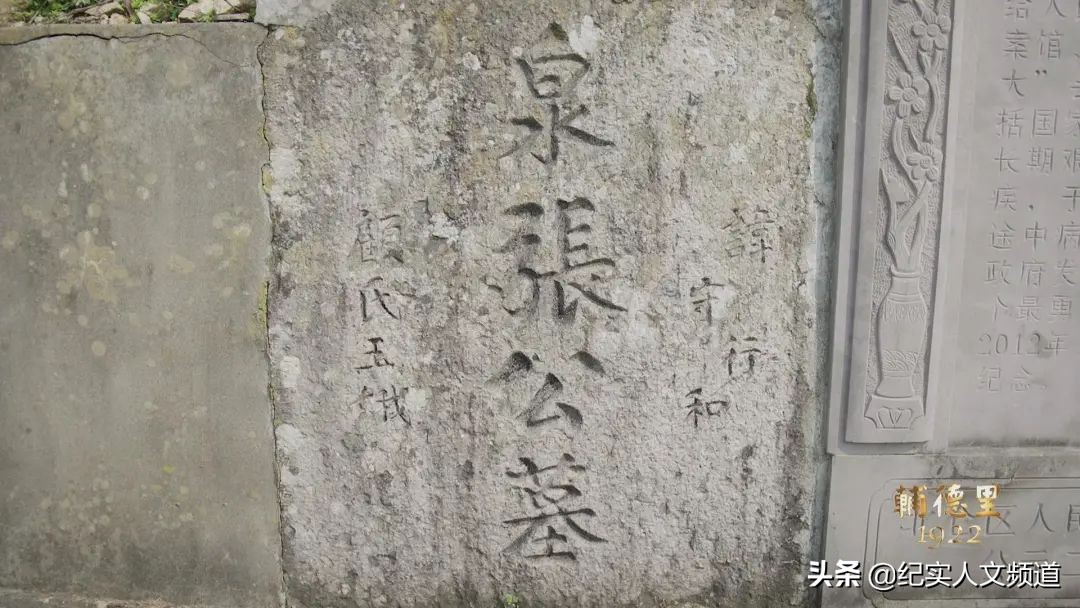 諱 行
守 和
泉張公墓
顧氏玉娥
给人
馆
大”
括国
长期
疾，于
途中病
政府发
个最重
2012年
纪念。
区人民
輔德里
1922
头条 @纪实人文频道